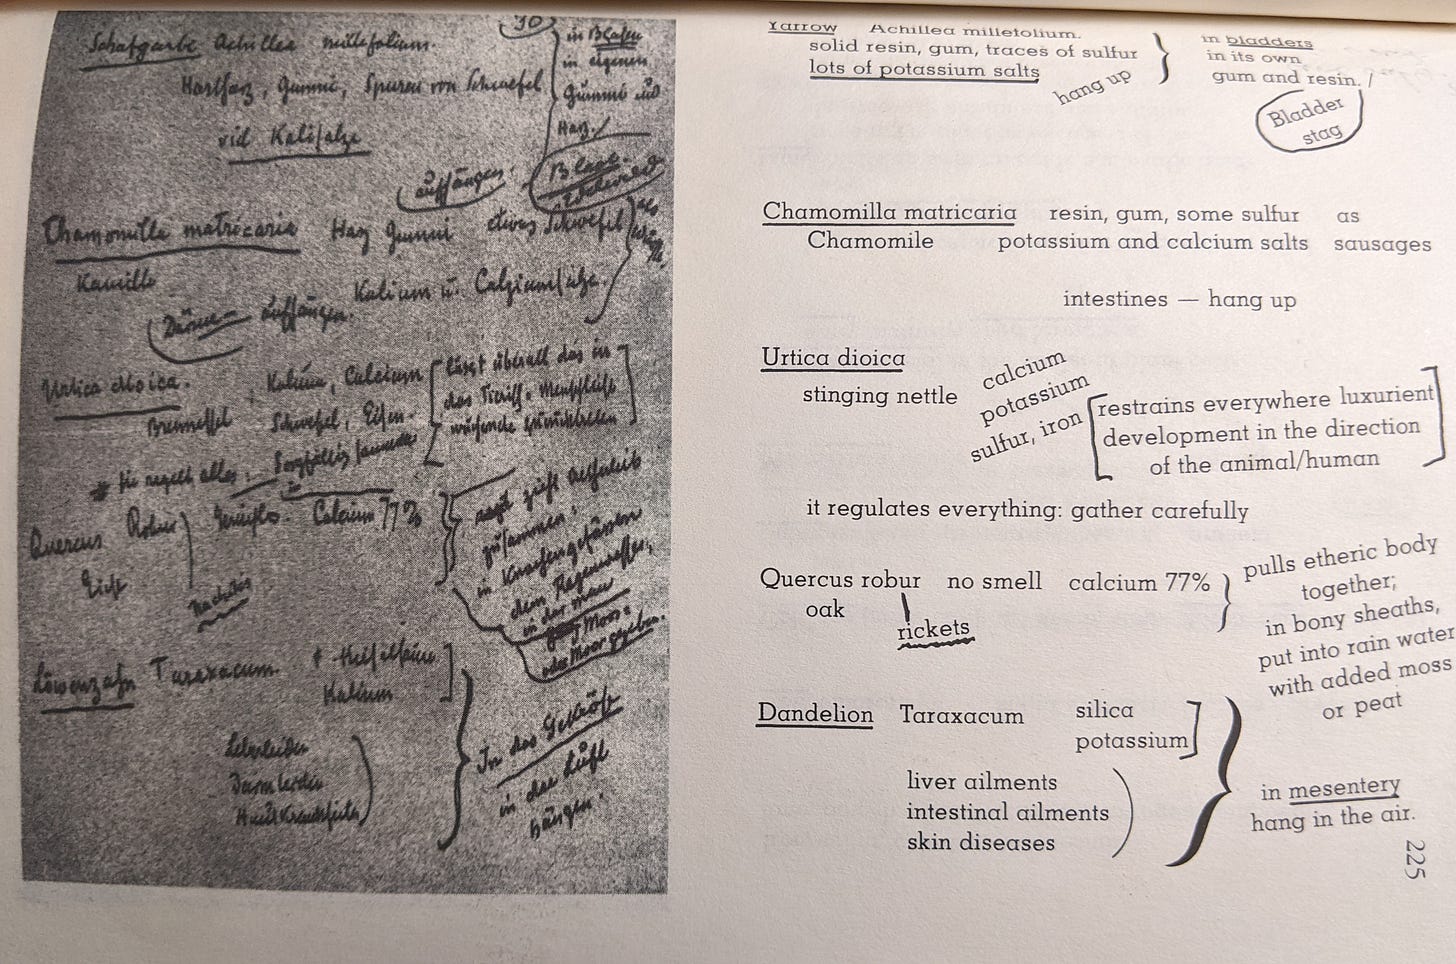 Schafgarbe Achillea millefolium.
30
in Blasen
in eigenen
Gummi und
Harz.
Hartharz, Gummi, Spuren von Schwefel
viel Kalisalze
aufhängen.
Chamomilla matricaria Harz Gummi etwas Schwefel
Kamille
Kalium u. Calziumsalze.
Därme aufhängen.
Urtica dioica.
Brennessel
Kalium, Calcium
Schwefel, Eisen.
überall das in
Quercus Robur
Calcium 77%
Rachitis
zusammen.
in
dem Regenwasser,
Moos
oder Moor
Löwenzahn Taraxacum.
Kalium
Leberleiden
Darmleiden
Hautkrankheiten
In das Gekröse
in der Luft
hängen.
Yarrow Achillea milletolium.
solid resin, gum, traces of sulfur
lots of potassium salts
hang up
in bladders
in its own
gum and resin. /
Bladder
stag
Chamomilla matricaria resin, gum, some sulfur as
Chamomile potassium and calcium salts sausages
intestines — hang up
Urtica dioica
stinging nettle
calcium
potassium
sulfur, iron
restrains everywhere luxurient
development in the direction
of the animal/human
it regulates everything: gather carefully
Quercus robur no smell calcium 77%
oak
rickets
pulls etheric body
together;
in bony sheaths,
put into rain water
with added moss
or peat
Dandelion Taraxacum
silica
potassium
liver ailments
intestinal ailments
skin diseases
in mesentery
hang in the air.
225